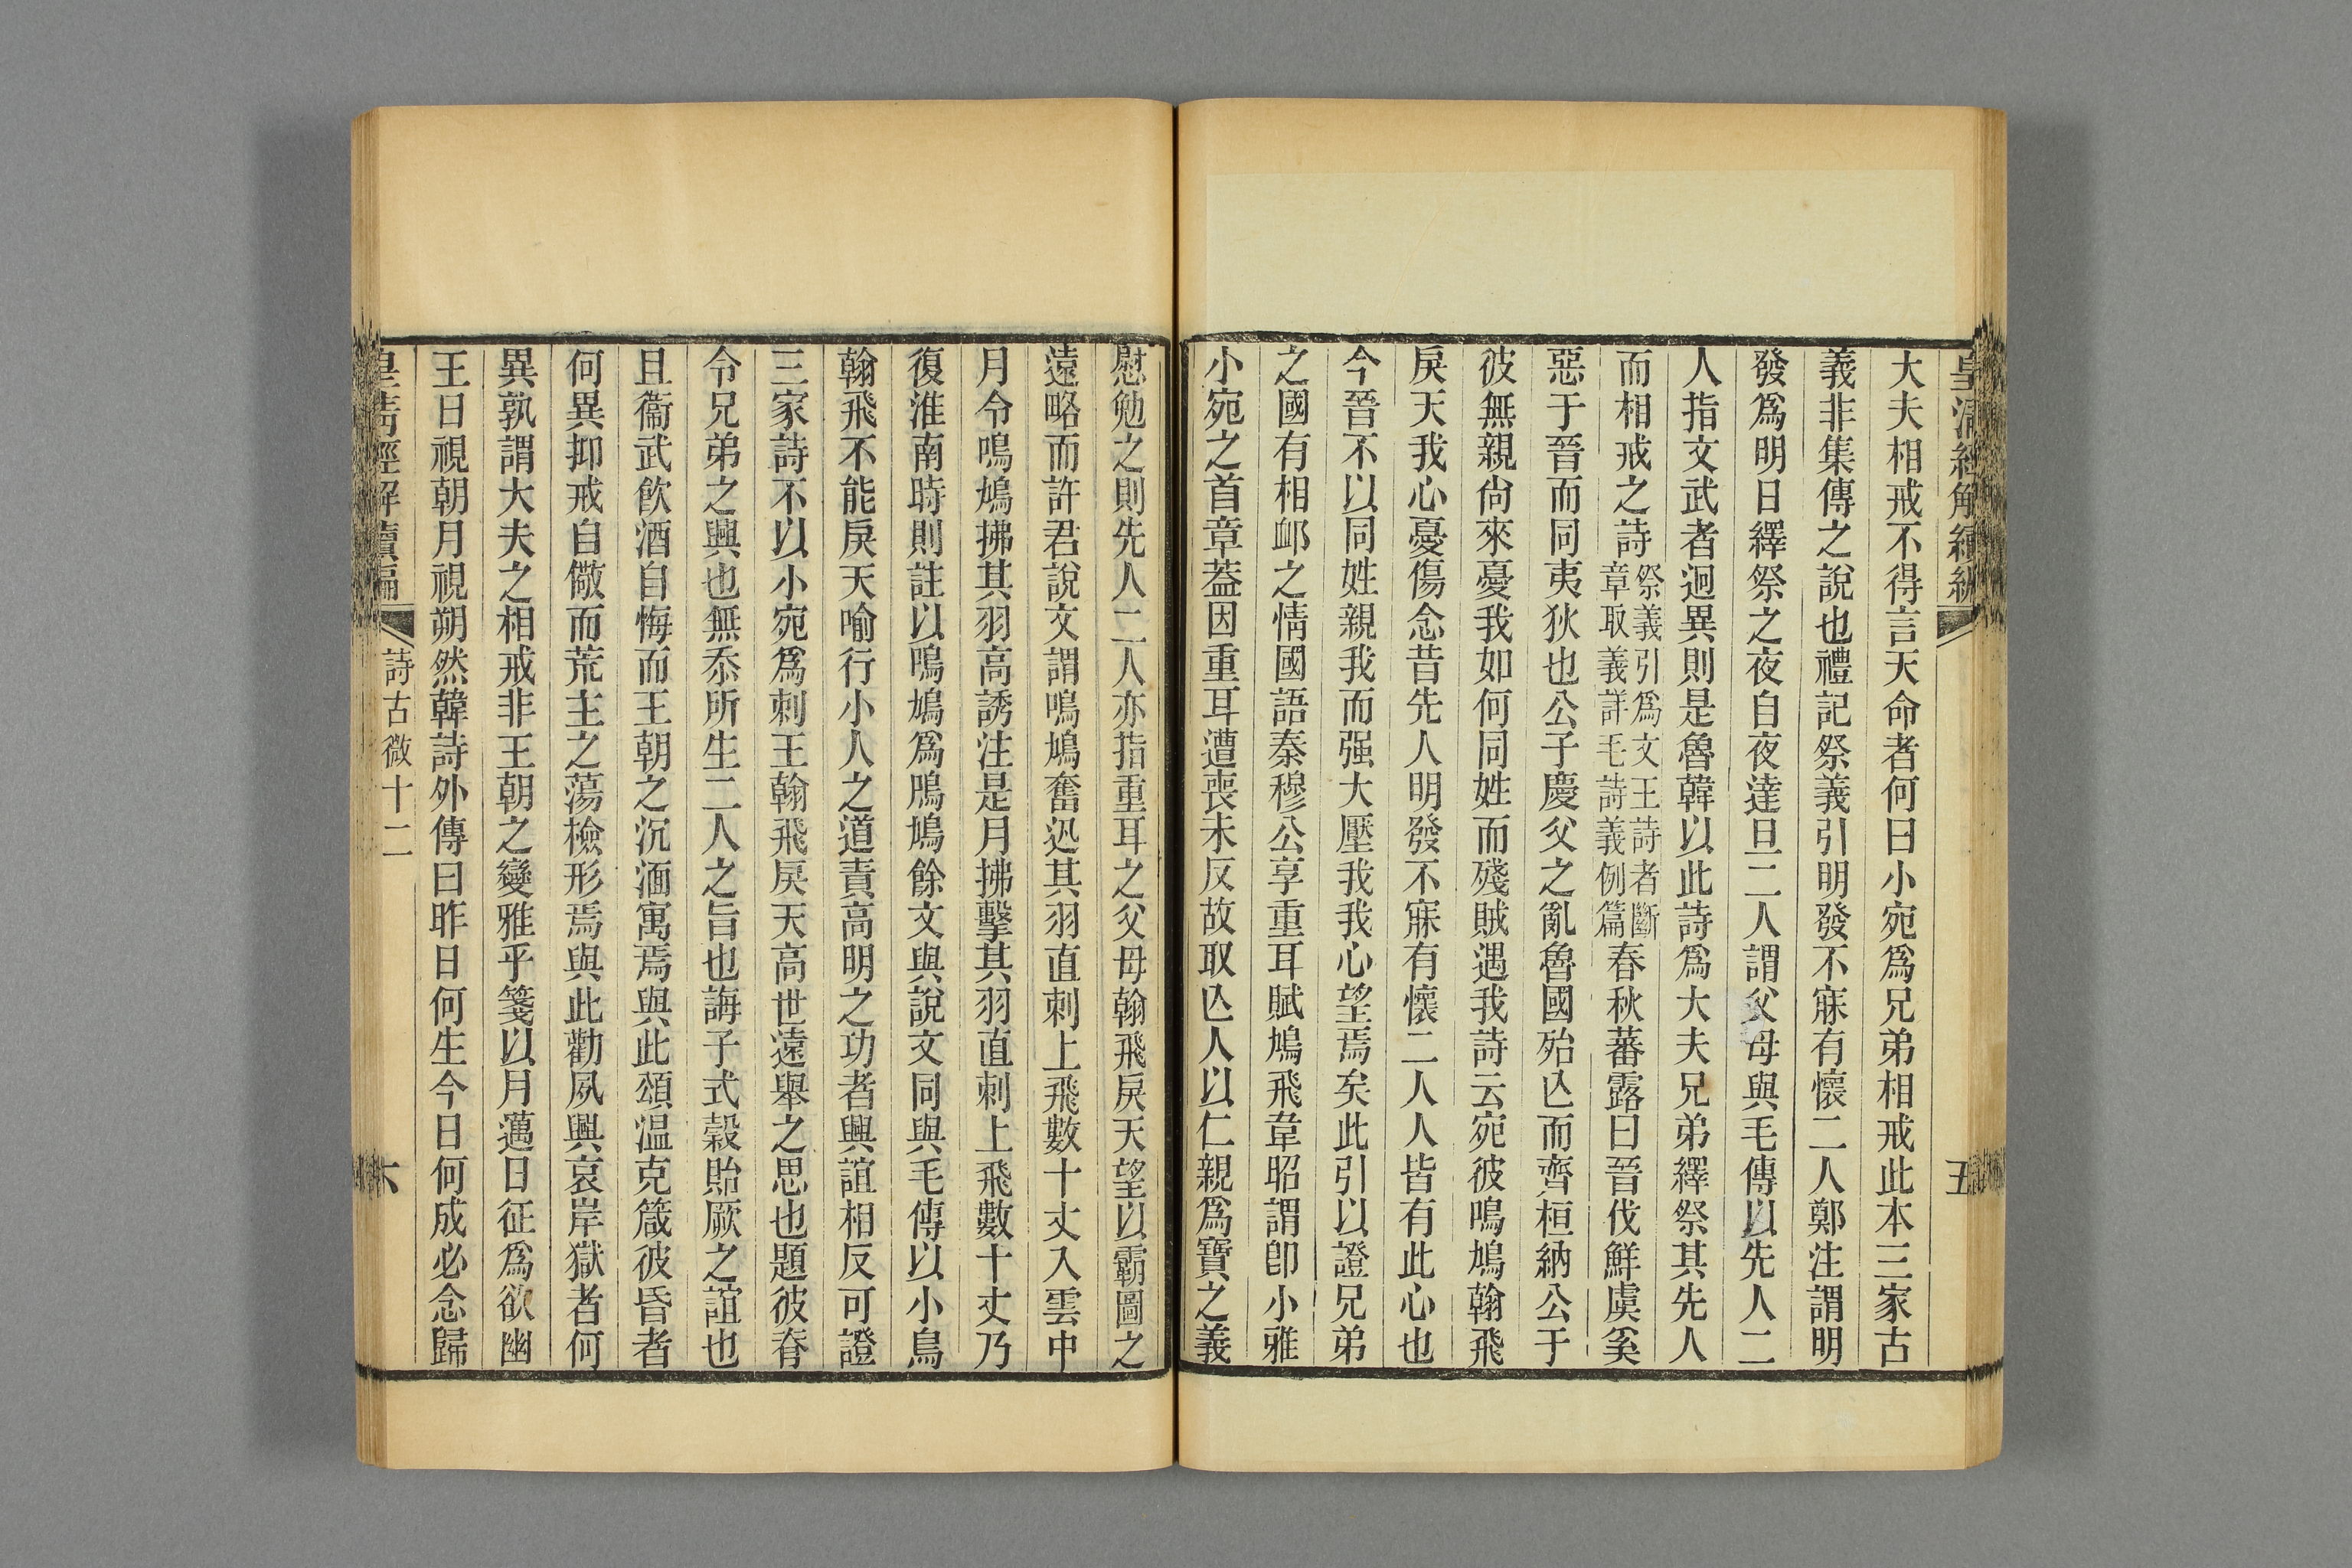 皇清經解續編
五
大夫相戒不得言天命者何曰小宛爲兄弟相戒此本三家古
義非集傳之說也禮記祭義引明發不寐有懷二人鄭注謂明
發爲明日繹祭之夜自夜達旦二人謂父母與毛傳以先人二
人指文武者迥異則是魯韓以此詩爲大夫兄弟繹祭其先人
而相戒之詩祭義引爲文王詩者斷章取義詳毛詩義例篇春秋蕃露曰晉伐鮮虞奚
惡于晉而同夷狄也公子慶父之亂魯國殆亾而齊桓納公于
彼無親尙來憂我如何同姓而殘賊遇我詩云宛彼鳴鳩翰飛
戾天我心憂傷念昔先人明發不寐有懷二人人皆有此心也
今晉不以同姓親我而强大壓我我心望焉矣此引以證兄弟
之國有相卹之情國語秦穆公享重耳賦鳩飛韋昭謂卽小雅
小宛之首章葢因重耳遭喪未反故取亾人以仁親爲寶之義
慰勉之則先人二人亦指重耳之父母翰飛戾天望以霸圖之
遠略而許君說文謂鳴鳩奮迅其羽直刺上飛數十丈入雲中
月令鳴鳩拂其羽高誘注是月拂擊其羽直刺上飛數十丈乃
復淮南時則註以鳴鳩爲鴡鳩餘文與說文同與毛傳以小鳥
翰飛不能戾天喻行小人之道責高明之功者興誼相反可證
三家詩不以小宛爲刺王翰飛戾天高世遠舉之思也題彼脊
令兄弟之興也無忝所生二人之旨也誨子式穀貽厥之誼也
且衞武飮酒自悔而王朝之沉湎寓焉與此頌温克箴彼昏者
何異抑戒自儆而荒主之蕩檢形焉與此勸夙興哀岸獄者何
異孰謂大夫之相戒非王朝之變雅乎箋以月邁日征爲欲幽
王日視朝月視朔然韓詩外傳曰昨日何生今日何成必念歸
皇清經解續編
詩古微十二
六